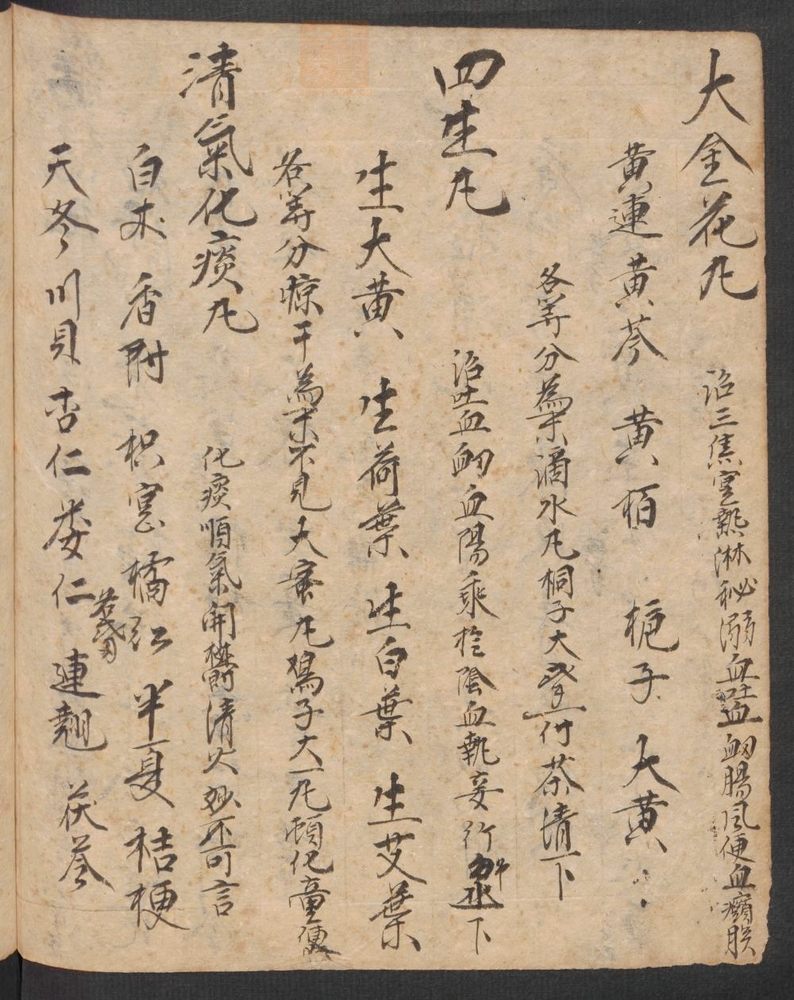 大金花丸 治三焦實熱淋秘溺血吐血衂腸風便血癲
黃連 黃芩 黃柏 梔子 大黃
各等分為末滴水丸桐子大 付茶清下
四生丸 治吐血衂血陽乘於陰血熱妄行 下
生大黃 生荷葉 生白葉 生艾葉
各等分晾干為末不見火蜜丸鴿子大一丸頓化童便
清氣化痰丸 化痰順氣開鬱清火妙不可言
白朮 香附 枳 橘紅 半夏 桔梗
天冬 川貝 杏仁 蔞仁 連翹 茯苓